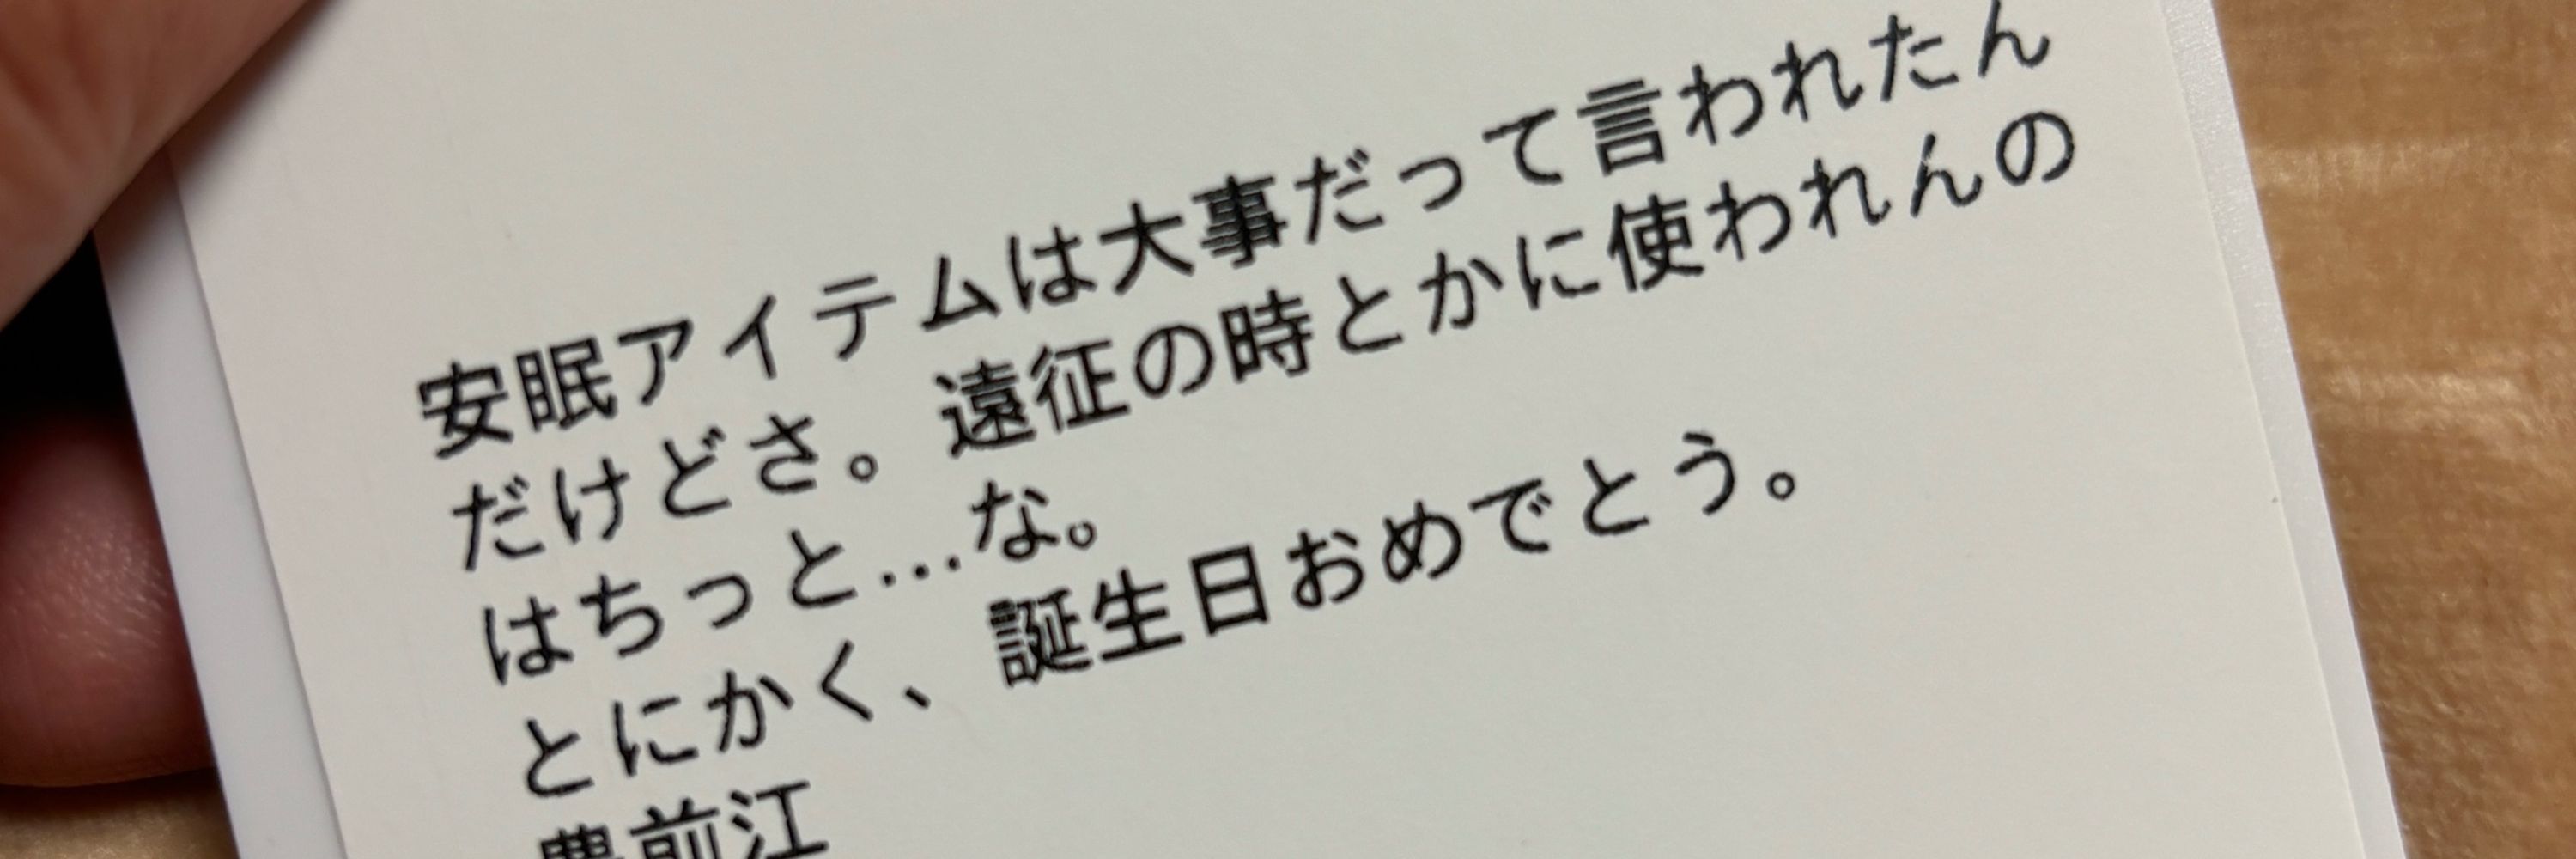 安眠アイテムは大事だって言われたん
だけどさ。遠征の時とかに使われんの
はちっと…な。
とにかく、誕生日おめでとう。
豊前江